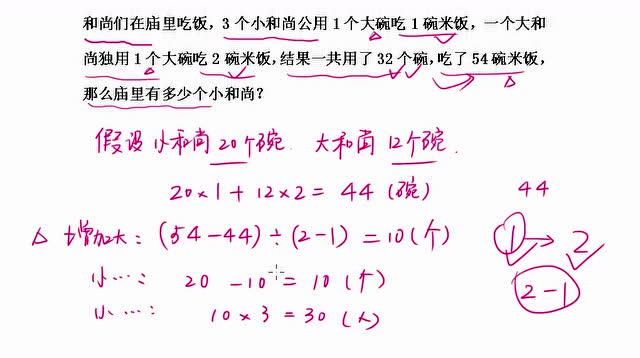 和尚们在庙里吃饭，3 个小和尚公用 1 个大碗吃 1 碗米饭，一个大和
尚独用 1 个大碗吃 2 碗米饭，结果一共用了 32 个碗，吃了 54 碗米饭，
那么庙里有多少个小和尚？
假设小和尚20个碗 大和尚12个碗.
20×1+12×2=44(碗) 44
△ 增加大：(54-44)÷(2-1)=10(个) 1→2
小…： 20 -10 = 10(个) 2-1
小…： 10×3=30(人)